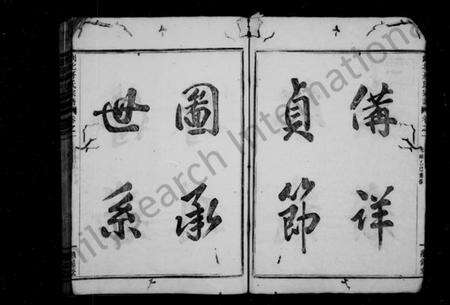 備詳
貞節
圖承
世系
FamilySearch International